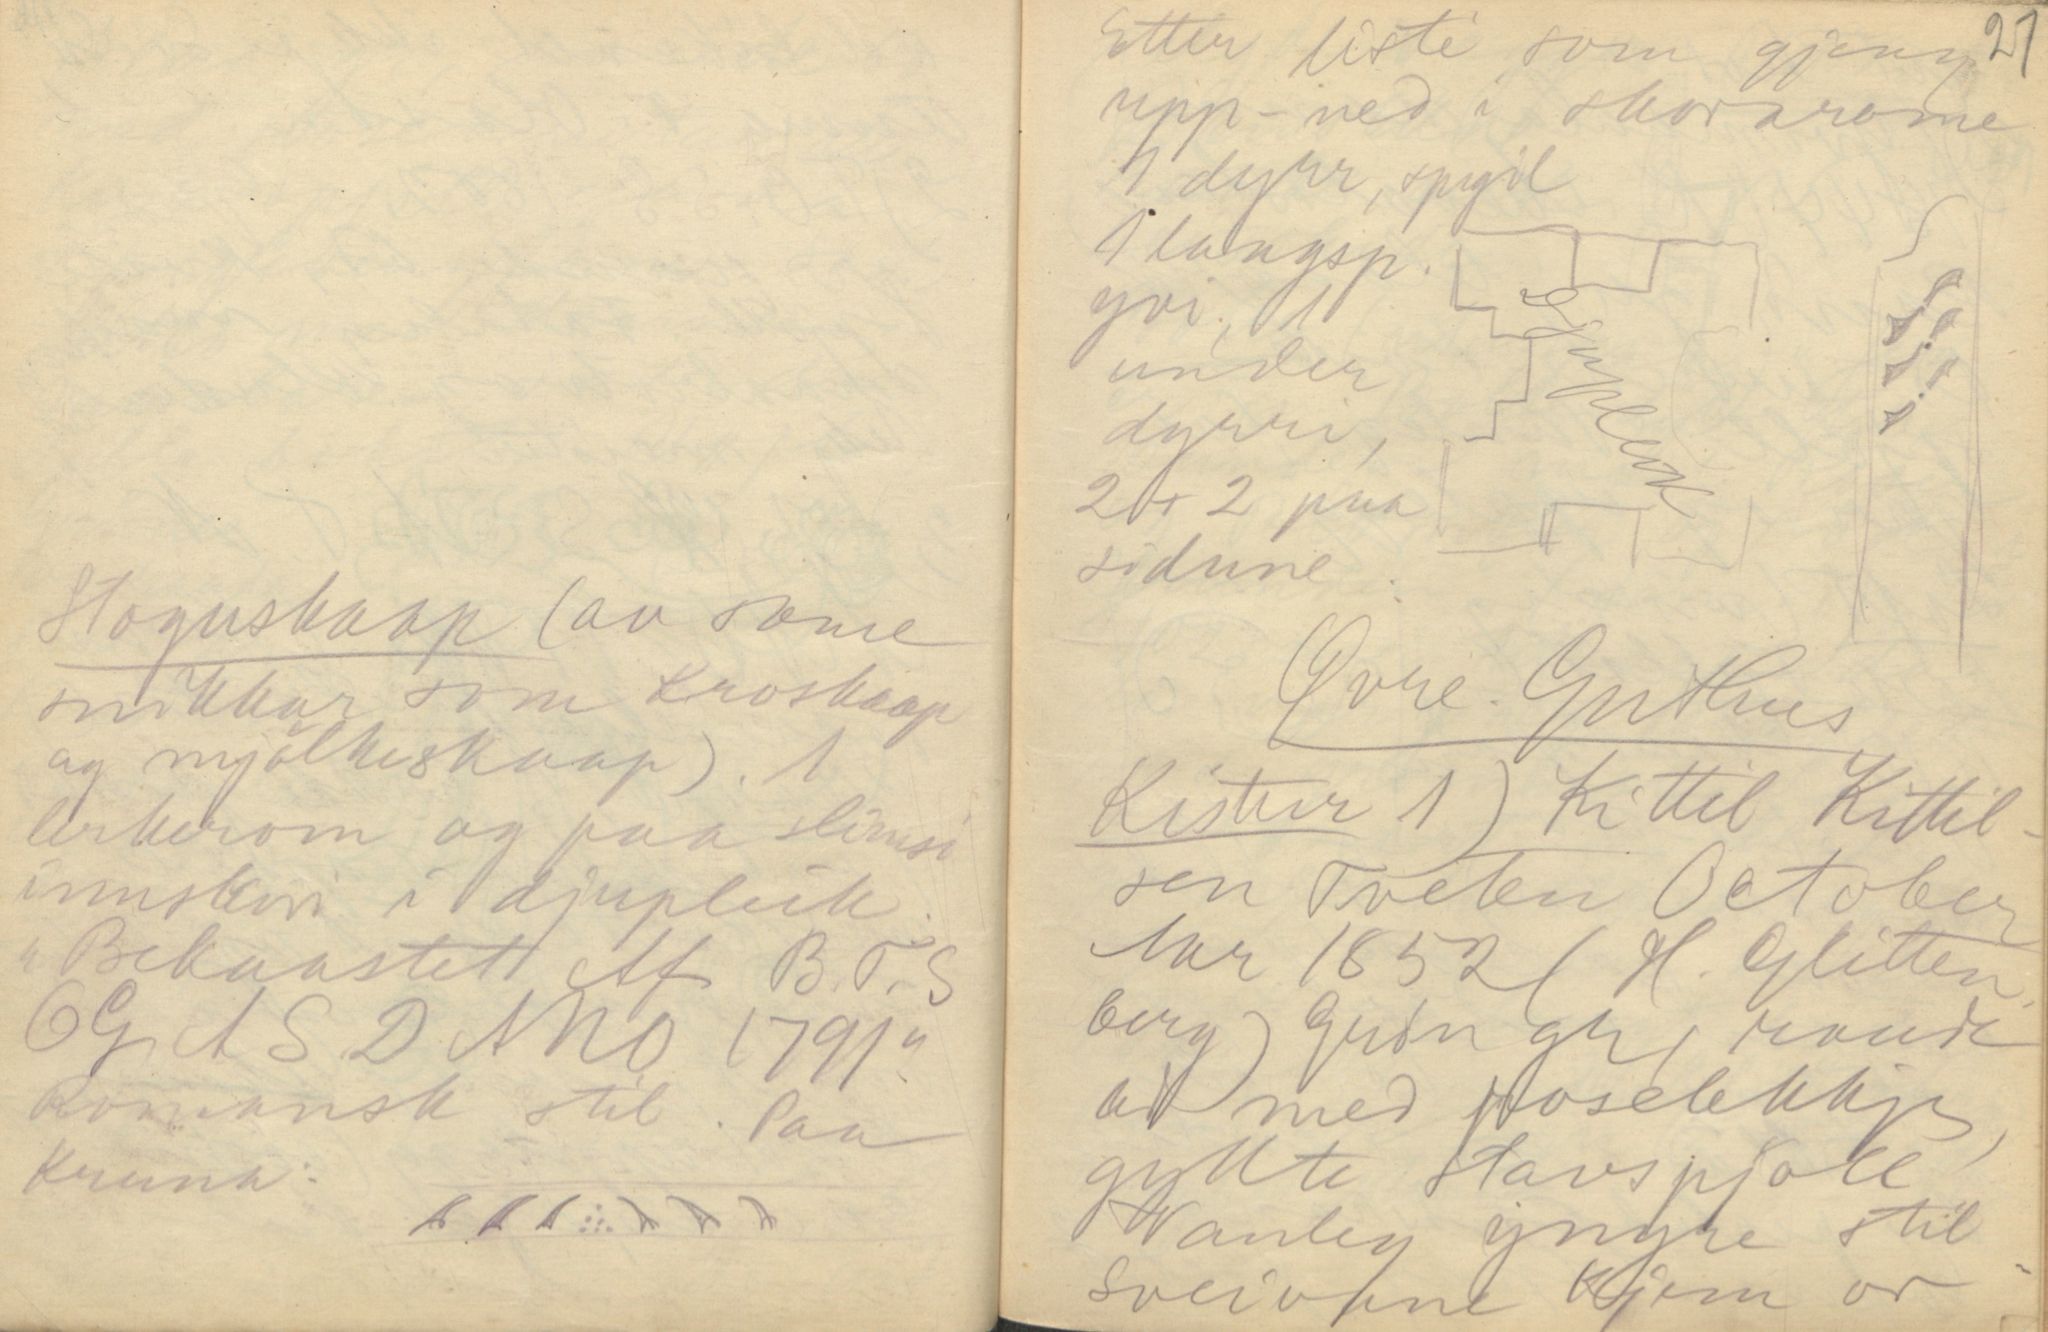 Stoguskaap (av same
snikkar som Kroskaap
og mjölkeskaap). 1
lerkerom og paa slimsi
innskori i djupleik.
"Bekaastet Af B.T.S
O G A S D ANNO 1791"
Romansk stil. Paa
Kruna:
21
Etter liste som gjeng
upp-ned i skorarome
1 dyrr, spgil
1 langsp.
yvi, 1
under
dyrri,
2 + 2 paa
sidune.
Djupleik
Øvre. Guthus
Kistur 1) Kittil Kittil-
sen Tveten October
Aar 1852 (H. Glitten-
berg) Grön gr, raude
 med roselekkjs,
gyllte stavspjöll
Vanleg yngre stil
Sveivane kjem or